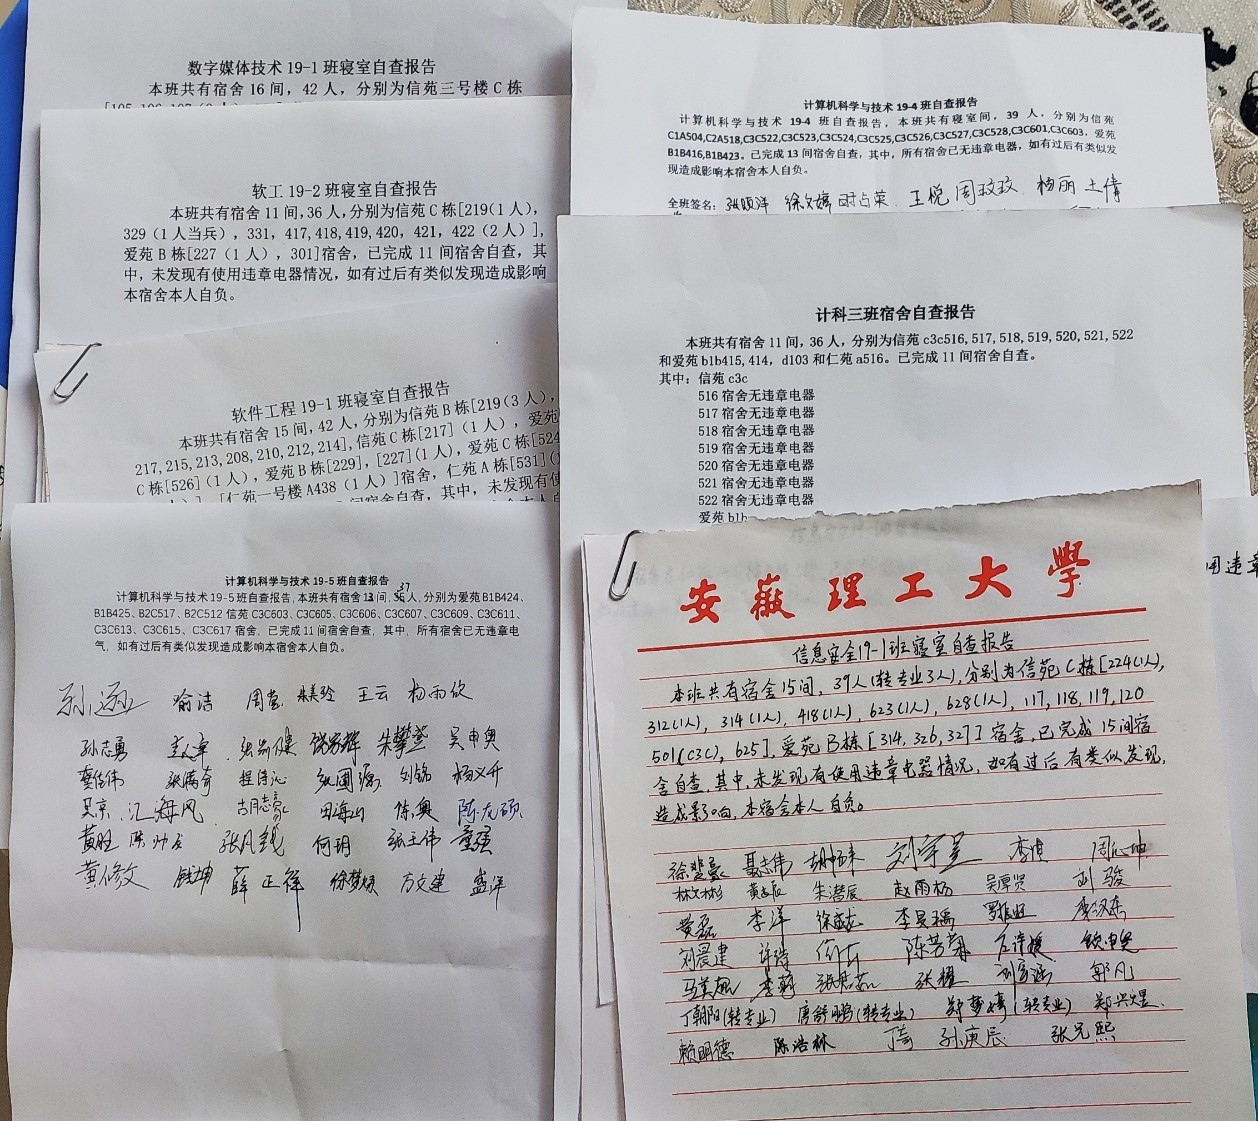 数字媒体技术 19-1 班寝室自查报告
本班共有宿舍 16 间，42 人，分别为信苑三号楼 C 栋
软工 19-2 班寝室自查报告
本班共有宿舍 11 间,36 人,分别为信苑 C 栋[219(1 人),
329（1 人当兵），331，417,418,419,420，421，422（2 人）],
爱苑 B 栋[227（1 人），301]宿舍，已完成 11 间宿舍自查，其
中，未发现有使用违章电器情况，如有过后有类似发现造成影响
本宿舍本人自负。
软件工程 19-1 班寝室自查报告
本班共有宿舍 15 间，42 人，分别为信苑 B 栋[219(3 人)，
217,215,213,208,210,212,214],信苑 C 栋[217]（1 人），爱苑
C 栋[526]（1 人），爱苑 B 栋[229],[227](1 人)，爱苑 C 栋[524
[仁苑一号楼 A438（1 人）]宿舍，仁苑 A 栋[531](
间宿舍自查，其中，未发现有使
计算机科学与技术 19-5 班自查报告
计算机科学与技术 19-5 班自查报告,本班共有宿舍 13 间, 37人,分别为爱苑 B1B424、
B1B425、B2C517、B2C512 信苑 C3C603、C3C605、C3C606、C3C607、C3C609、C3C611、
C3C613、C3C615、C3C617 宿舍，已完成 11 间宿舍自查，其中，所有宿舍已无违章电
气，如有过后有类似发现造成影响本宿舍本人自负。
喻洁 周莹 朱美玲 王云 杨雨欣
孙志勇 朱攀登 吴申奥
张满奇 程诗沁 刘铭 杨义升
吴京 汪海风 胡志豪 田海山 陈奥 陈龙硕
黄旺 张凡钱 何玥 张王伟 童强
黄修文 钱坤 薛正祥 徐梦娇 方文建 盛洋
计算机科学与技术 19-4 班自查报告
计算机科学与技术 19-4 班自查报告，本班共有寝室间，39 人，分别为信苑
C1A504,C2A518,C3C522,C3C523,C3C524,C3C525,C3C526,C3C527,C3C528,C3C601,C3C603，爱苑
B1B416,B1B423。已完成 13 间宿舍自查，其中，所有宿舍已无违章电器，如有过后有类似发
现造成影响本宿舍本人自负。
全班签名： 张顺洋 徐文婷 时占英 王悦 周玟玟 杨丽 王倩
计科三班宿舍自查报告
本班共有宿舍 11 间，36 人，分别为信苑 c3c516,517,518,519,520,521,522
和爱苑 b1b415,414，d103 和仁苑 a516。已完成 11 间宿舍自查。
其中：信苑 c3c
516 宿舍无违章电器
517 宿舍无违章电器
518 宿舍无违章电器
519 宿舍无违章电器
520 宿舍无违章电器
521 宿舍无违章电器
522 宿舍无违章电器
爱苑 b1b
用违章
安徽理工大学
信息安全19-1班寝室自查报告
本班共有宿舍15间，39人(转专业3人),分别为信苑C栋[224(1人),
312(1人), 314(1人), 418(1人), 623(1人), 628(1人), 117, 118, 119, 120
501(C3C), 625], 爱苑B栋[314, 326, 327]宿舍,已完成15间宿
舍自查,其中,未发现有使用违章电器情况,如有过后有类似发现,
造成影响,本宿舍本人自负。
聂志伟 胡畅来 李倩 周心坤
林文彬 黄志辰 朱潜辰 赵雨杨 吴厚贤 刘骏
黄磊 李洋 李昊瑞
刘晨建 许诗 陈芳菊
李莉 张君茹 张耀 郭凡
丁朝阳(转专业) 唐舒鹏(转专业) 郑梦婷(转专业) 郑兴煜
赖明德 陈浩林 丁奇 孙庚辰 张元熙